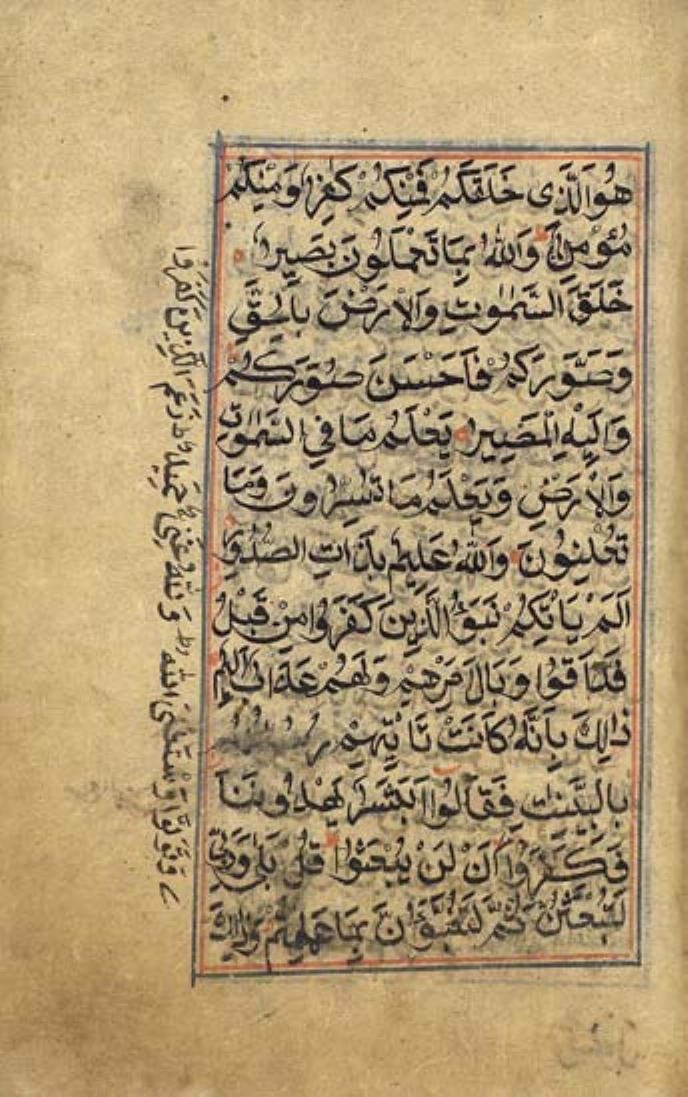 هُوَ الَّذِى خَلَقَكُمْ فَمِنْكُمْ كَافِرٌ وَمِنْكُمْ
مُؤْمِنٌ وَاللّٰهُ بِمَا تَعْمَلُونَ بَصِيرٌ
خَلَقَ السَّمٰوٰتِ وَالْاَرْضَ بِالْحَقِّ
وَصَوَّرَكُمْ فَاَحْسَنَ صُوَرَكُمْ
وَاِلَيْهِ الْمَصِيرُ يَعْلَمُ مَا فِى السَّمٰوٰتِ
وَالْاَرْضِ وَيَعْلَمُ مَا تُسِرُّونَ وَمَا
تُعْلِنُونَ وَاللّٰهُ عَلِيمٌ بِذَاتِ الصُّدُورِ
اَلَمْ يَاْتِكُمْ نَبَؤُا الَّذِينَ كَفَرُوا مِنْ قَبْلُ
فَذَاقُوا وَبَالَ اَمْرِهِمْ وَلَهُمْ عَذَابٌ اَلِيمٌ
ذٰلِكَ بِاَنَّهُ كَانَتْ تَاْتِيهِمْ
بِالْبَيِّنٰتِ فَقَالُوا اَبَشَرٌ يَهْدُونَنَا
فَكَفَرُوا اَنْ لَنْ يُبْعَثُوا قُلْ بَلٰى وَرَبِّى
لَتُبْعَثُنَّ ثُمَّ لَتُنَبَّؤُنَّ بِمَا عَمِلْتُمْ وَذٰلِكَ
وَتَوَلَّوْا وَاسْتَغْنَى اللّٰهُ ط وَاللّٰهُ غَنِىٌّ حَمِيدٌ ط زَعَمَ الَّذِينَ كَفَرُوا